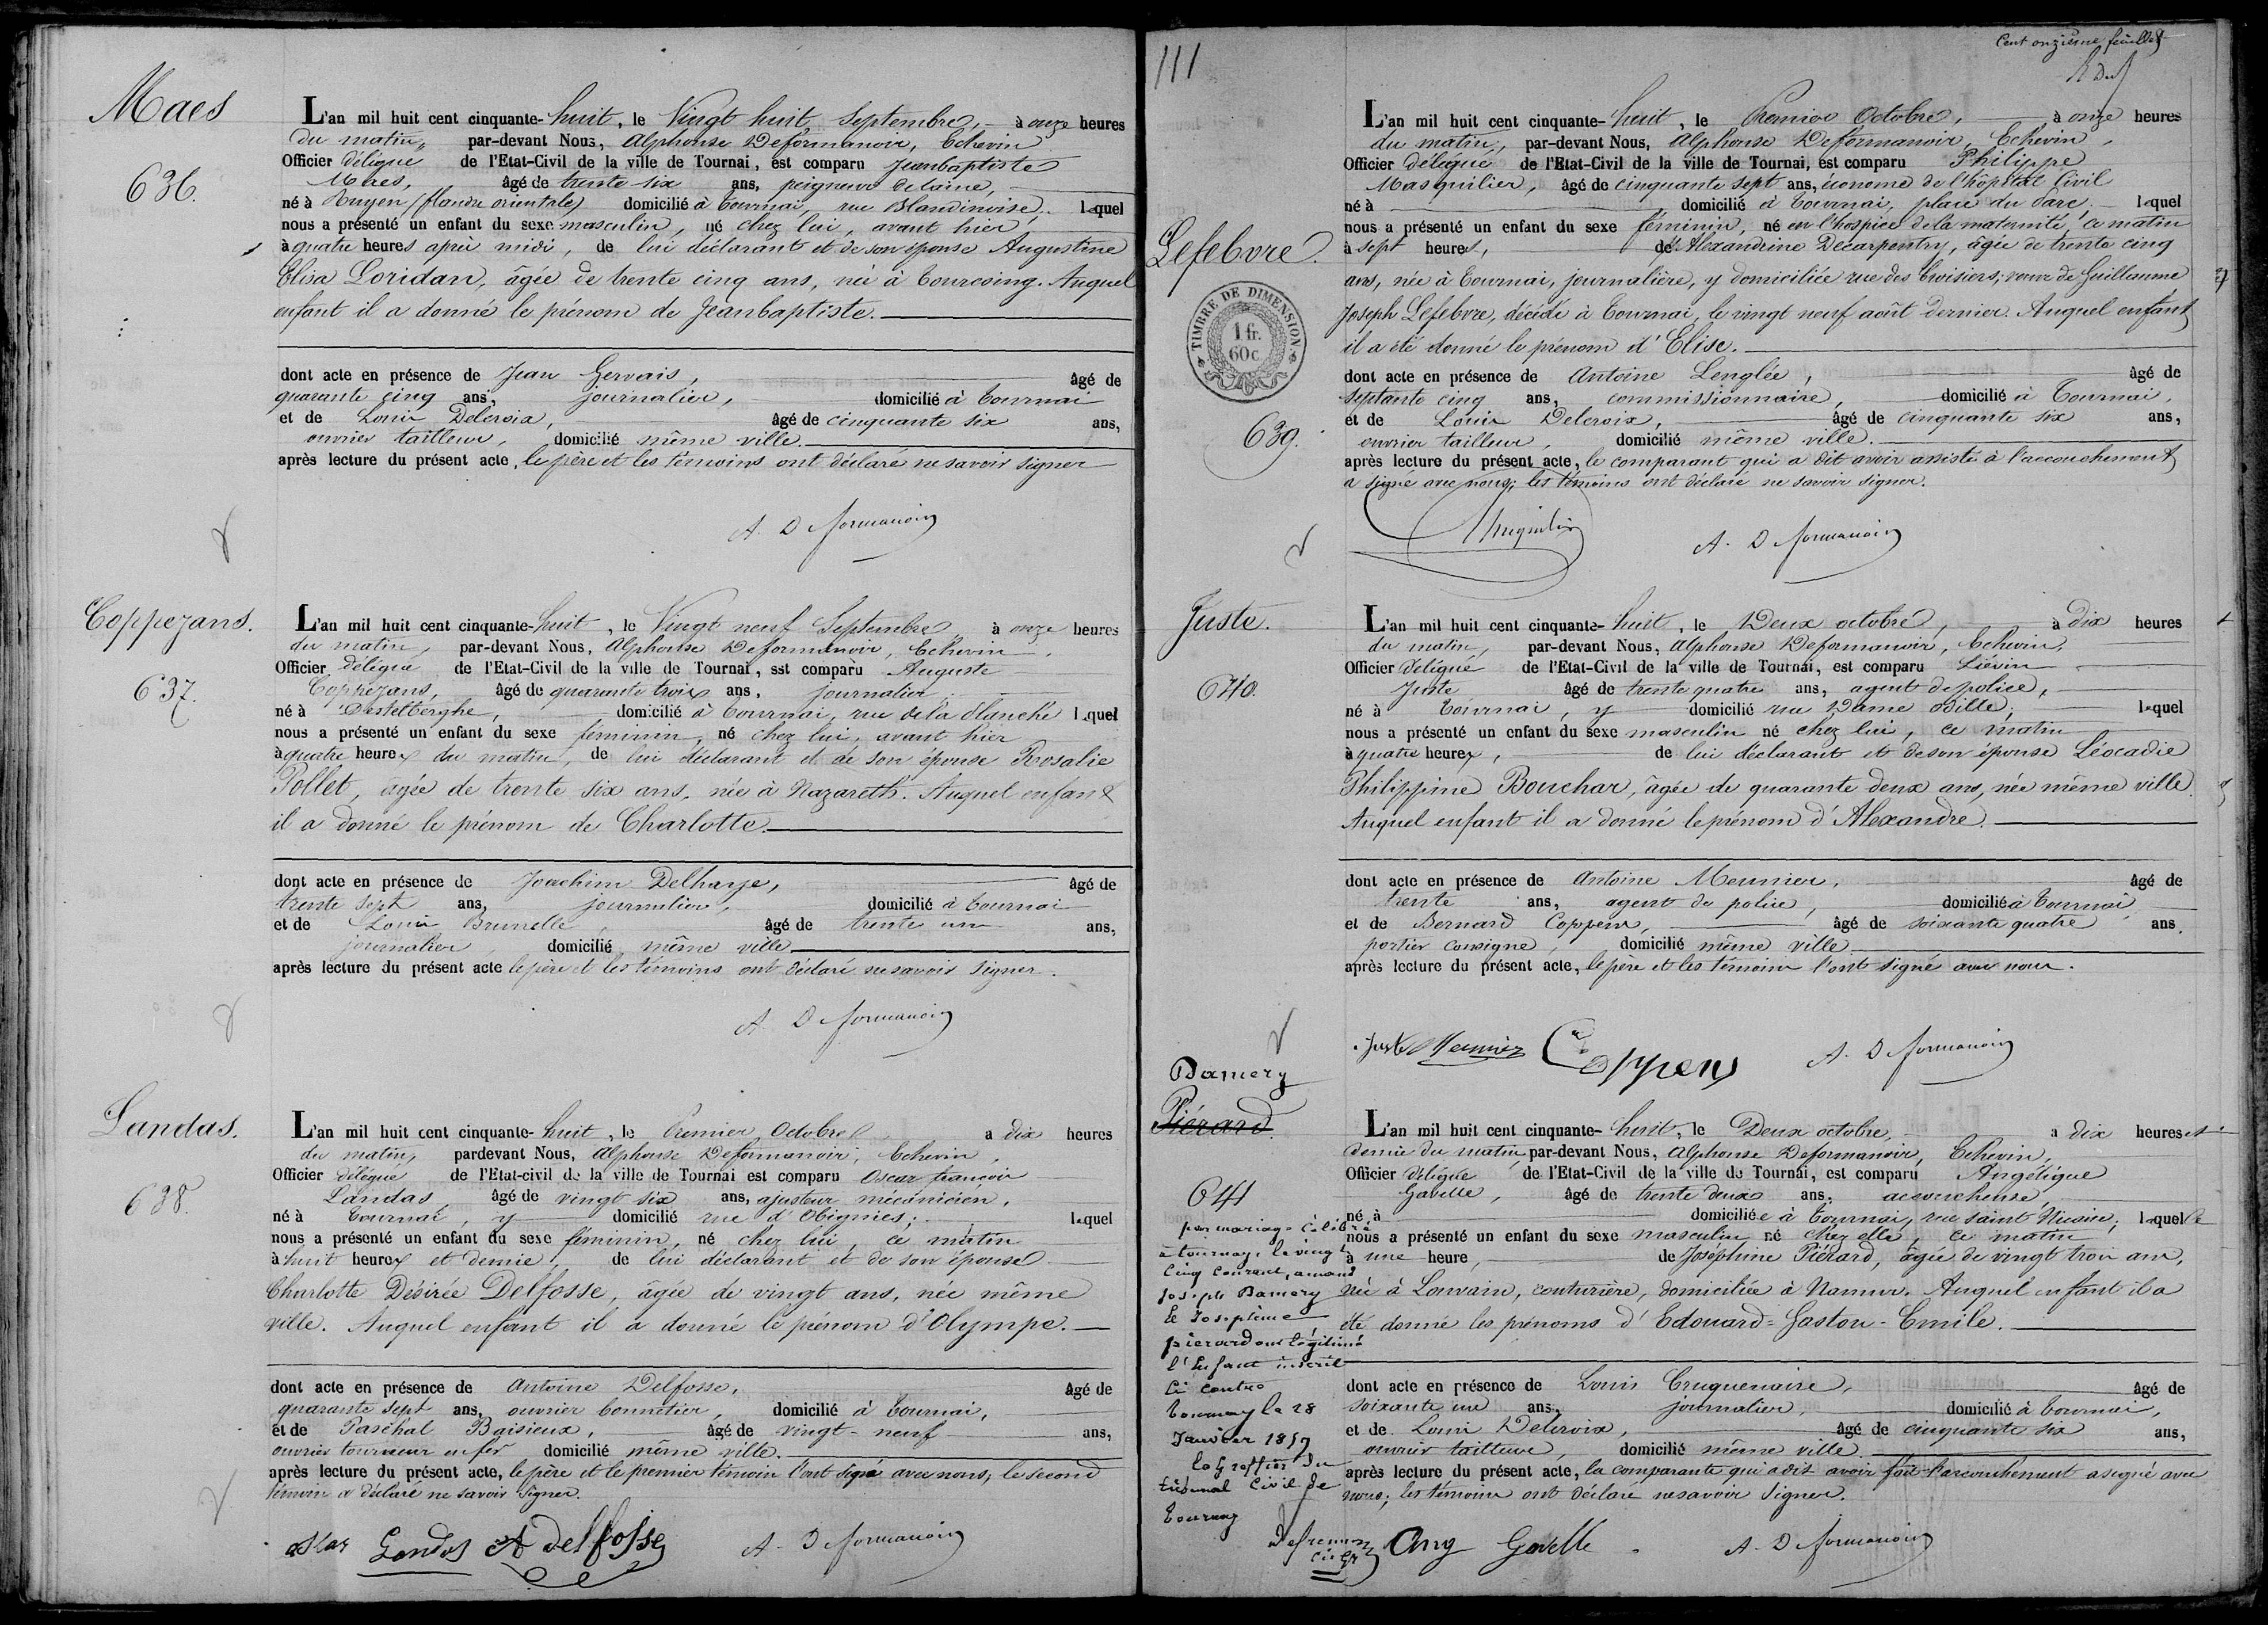 Maes
636.
L'an mil huit cent cinquante-huit, le Vingt huit Septembre, à onze heures
du matin, par-devant Nous, Alphonse Deformanoir, Echevin
Officier délégué de l'Etat-Civil de la ville de Tournai, est comparu Jeanbaptiste
Maes, âgé de trente six ans, peigneur de laine,
né à Huyen (flandre orientale) domicilié à Tournai, rue Blandinoise, lequel
nous a présenté un enfant du sexe masculin, né chez lui, avant hier
à quatre heures après midi, de lui déclarant et de son épouse Augustine
Elisa Loridan, âgée de trente cinq ans, née à Tourcoing. Auquel
enfant il a donné le prénom de Jeanbaptiste.
dont acte en présence de Jean Gervais, âgé de
quarante cinq ans, journalier, domicilié à Tournai
et de Louis Delcroix, âgé de cinquante six ans,
ouvrier tailleur, domicilié même ville.
après lecture du présent acte, le père et les témoins ont déclaré ne savoir signer
A. Deformanoir
Coppezans.
637.
L'an mil huit cent cinquante-huit, le Vingt neuf Septembre à onze heures
du matin, par-devant Nous, Alphonse Deformanoir, Echevin
Officier délégué de l'Etat-Civil de la ville de Tournai, sst comparu Auguste
Coppezans, âgé de quarante trois ans, journalier,
né à Destelberghe, domicilié à Tournai, rue de la Planche lequel
nous a présenté un enfant du sexe féminin, né chez lui, avant hier
à quatre heures du matin, de lui déclarant et de son épouse Rosalie
Pollet, âgée de trente six ans, née à Nazareth. Auquel enfant
il a donné le prénom de Charlotte.
dont acte en présence de Joachim Delhaye, âgé de
trente sept ans, journalier, domicilié à Tournai
et de Louis Brunelle, âgé de trente un ans,
journalier domicilié même ville
après lecture du présent acte le père et les témoins ont déclaré ne savoir signer.
A. Deformanoir
Landas.
638.
L'an mil huit cent cinquante-huit, le Premier Octobre, a dix heures
du matin, pardevant Nous, Alphonse Deformanoir, Echevin,
Officier délégué de l'Etat-civil de la ville de Tournai est comparu Oscar françois
Landas, âgé de vingt six ans, ajusteur mécanicien,
né à Tournai, y domicilié rue d'Obignies; lequel
nous a présenté un enfant du sexe féminin, né chez lui, ce matin
à huit heures et demie, de lui déclarant et de son épouse
Charlotte Désirée Delfosse, âgée de vingt ans, née même
ville. Auquel enfant il a donné le prénom d'Olympe.
dont acte en présence de Antoine Delfosse, âgé de
quarante sept ans, ouvrier bonnetier, domicilié à Tournai,
et de Paschal Baisieux, âgé de vingt-neuf ans,
ouvrier tourneur en fer domicilié même ville.
après lecture du présent acte, le père et le premier témoin l'ont signé avec nous, le second
témoin a déclaré ne savoir signer.
oscar Landas A Delfosse A. Deformanoir
111
Cent onzième feuillet
Lefebvre.
TIMBRE DE DIMENSION
1 fr.
60 c.
639.
L'an mil huit cent cinquante-huit, le Premier Octobre, à onze heures
du matin, par-devant Nous, Alphonse Deformanoir, Echevin,
Officier délégué de l'Etat-Civil de la ville de Tournai, est comparu Philippe
Masquilier, âgé de cinquante sept ans, économe de l'hôpital Civil
né à domicilié à Tournai, place du Parc. lequel
nous a présenté un enfant du sexe féminin, né en l'hospice de la maternité, ce matin
à sept heures, de Alexandrine Decarpentry, âgée de trente cinq
ans, née à Tournai, journalière, y domiciliée rue des Croisiers, veuve de Guillaume
Joseph Lefebvre, décédé à Tournai, le vingt neuf août dernier. Auquel enfant
il a été donné le prénom d'Elise.
dont acte en présence de Antoine Lenglée, âgé de
septante cinq ans, commissionnaire, domicilié à Tournai,
et de Louis Delcroix, âgé de cinquante six ans,
ouvrier tailleur, domicilié même ville.
après lecture du présent acte, le comparant qui a dit avoir assisté à l'accouchement
a signé avec nous; les témoins ont déclaré ne savoir signer.
Masquilier A. Deformanoir
Juste.
640.
L'an mil huit cent cinquante-huit, le Deux octobre, à dix heures
du matin, par-devant Nous, Alphonse Deformanoir, Echevin,
Officier délégué de l'Etat-Civil de la ville de Tournai, est comparu Liévin
Juste âgé de trente quatre ans, agent de police,
né à Tournai, y domicilié rue Dame Odille, lequel
nous a présenté un enfant du sexe masculin né chez lui, ce matin
à quatre heures, de lui déclarant et de son épouse Léocadie
Philippine Bouchar, âgée de quarante deux ans, née même ville.
Auquel enfant il a donné le prénom d'Alexandre.
dont acte en présence de Antoine Meunier, âgé de
trente ans, agent de police, domicilié à Tournai
et de Bernard Coppens, âgé de soixante quatre ans,
portier consigne, domicilié même ville
après lecture du présent acte, le père et les témoins l'ont signé avec nous.
Juste Meunier Coppens A. Deformanoir
Damery
Piérard.
641
par mariage célébré
à tournay, le vingt
cinq courant, amand
joseph Damery
et Josephine
pierard ont légitimé
l'Enfant inscrit
ci contre
Tournay le 28
Janvier 1859
le greffier du
tribunal Civil de
Tournay
L'an mil huit cent cinquante-huit, le Deux octobre, a dix heures et
demie du matin par-devant Nous, Alphonse Deformanoir, Echevin,
Officier délégué de l'Etat-Civil de la ville de Tournai, est comparu Angélique
Gavelle, âgé de trente deux ans, accoucheuse,
né à domiciliée à Tournai, rue saint Nicaise, laquelle
nous a présenté un enfant du sexe masculin né chez elle, ce matin
à une heure, de Joséphine Piérard, âgée de vingt trois ans,
née à Louvain, couturière, domiciliée à Namur. Auquel enfant il a
été donné les prénoms d'Edouard-Gaston-Emile.
dont acte en présence de Louis Cruquenaire, âgé de
soixante un ans, journalier, domicilié à Tournai,
et de Louis Delcroix, âgé de cinquante six ans,
ouvrier tailleur, domicilié même ville
après lecture du présent acte, la comparante qui a dit avoir fait l'accouchement a signé avec
nous; les témoins ont déclaré ne savoir signer.
Ang Gavelle A. Deformanoir